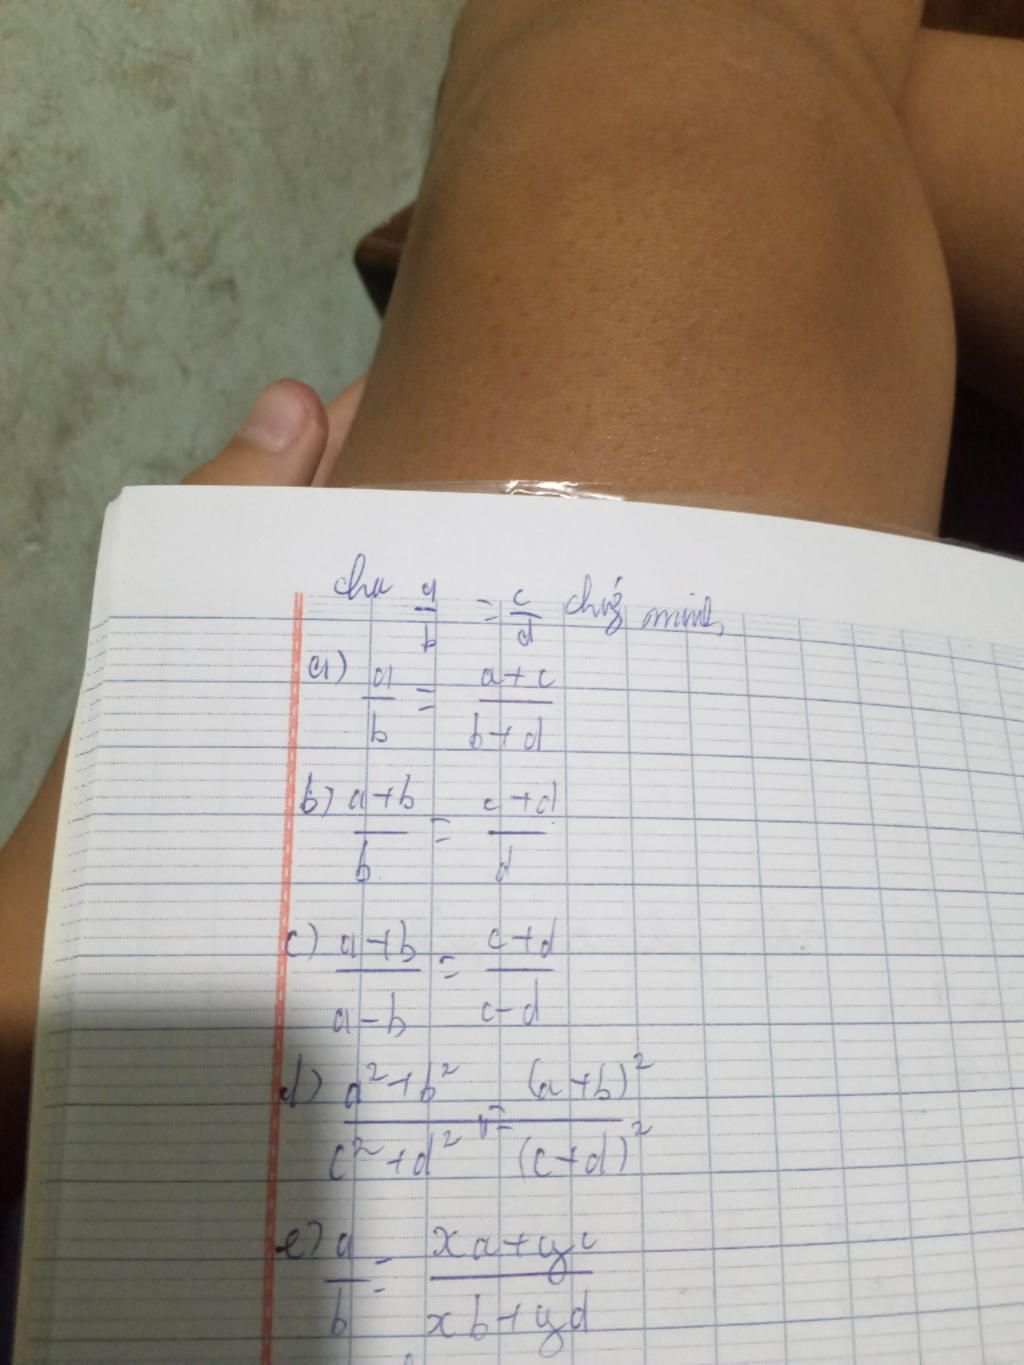 cho a/b = c/d chứng minh
a) a/b = a+c/b+d
b) a+b/b = c+d/d
c) a+b/a-b = c+d/c-d
d) a²+b²/c²+d² = (a+b)²/(c+d)²
e) a/b = xa+yc/xb+yd